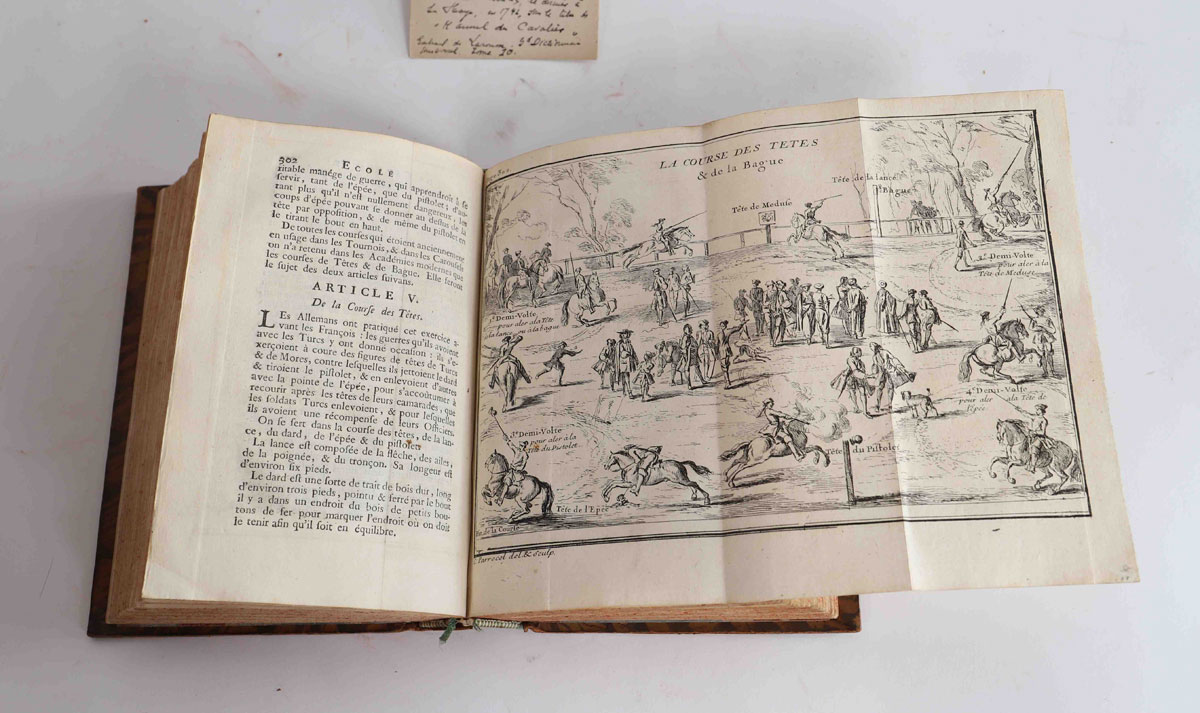 La Haye, en 1742, sous le titre de
" Manuel du Cavalier "
302 ECOLE
ritable manége de guerre, qui apprendrois à se
servir, tant de l'épée, que du pistolet; d'au-
tant plus qu'il n'est nullement dangereux, les
coups d'épée pouvant se donner au dessus de la
tête par opposition, & de même du pistolet en
le tirant le bout en haut.
De toutes les courses qui étoient anciennement
en usage dans les Tournois, & dans les Carousels
on n'a retenu dans les Académies modernes que
les courses de Têtes & de Bague. Elle feront
le sujet des deux articles suivans.
ARTICLE V.
De la Course des Têtes.
LEs Allemans ont pratiqué cet exercice a-
vant les François: les guerres qu'ils avoient
avec les Turcs y ont donné occasion: ils s'e-
xerçoient à coure des figures de têtes de Turcs
& de Mores, contre lesquelles ils jettoient le dard
& tiroient le pistolet, & en enlevoient d'autres
avec la pointe de l'épée, pour s'accoûtumer à
recourir après les têtes de leurs camarades, que
les soldats Turcs enlevoient, & pour lesquelles
ils avoient une récompense de leurs Officiers.
On se sert dans la course des têtes, de la lan-
ce, du dard, de l'épée & du pistolet.
La lance est composée de la fléche, des aîles,
de la poignée, & du tronçon. Sa longueur est
d'environ six pieds.
Le dard est une sorte de trait de bois dur, long
d'environ trois pieds, pointu & ferré par le bout
il y a dans un endroit du bois de petits bou-
tons de fer pour marquer l'endroit où on doit
le tenir afin qu'il soit en équilibre,
LA COURSE DES TETES
& de la Bague
Tête de la lance
Bague
Tête de Meduse
2e Demi-Volte
pour aler à la
Tête de Meduse
Demi-Volte
pour aler à la Tête
la lance ou à la bague
4e Demi-Volte
pour aler à la Tête de
l'Epée
3e Demi-Volte
pour aler à la
Tête du Pistolet
Tête du Pistolet
Tête de l'Epée
de la Course
Parrocel del. & Sculp.